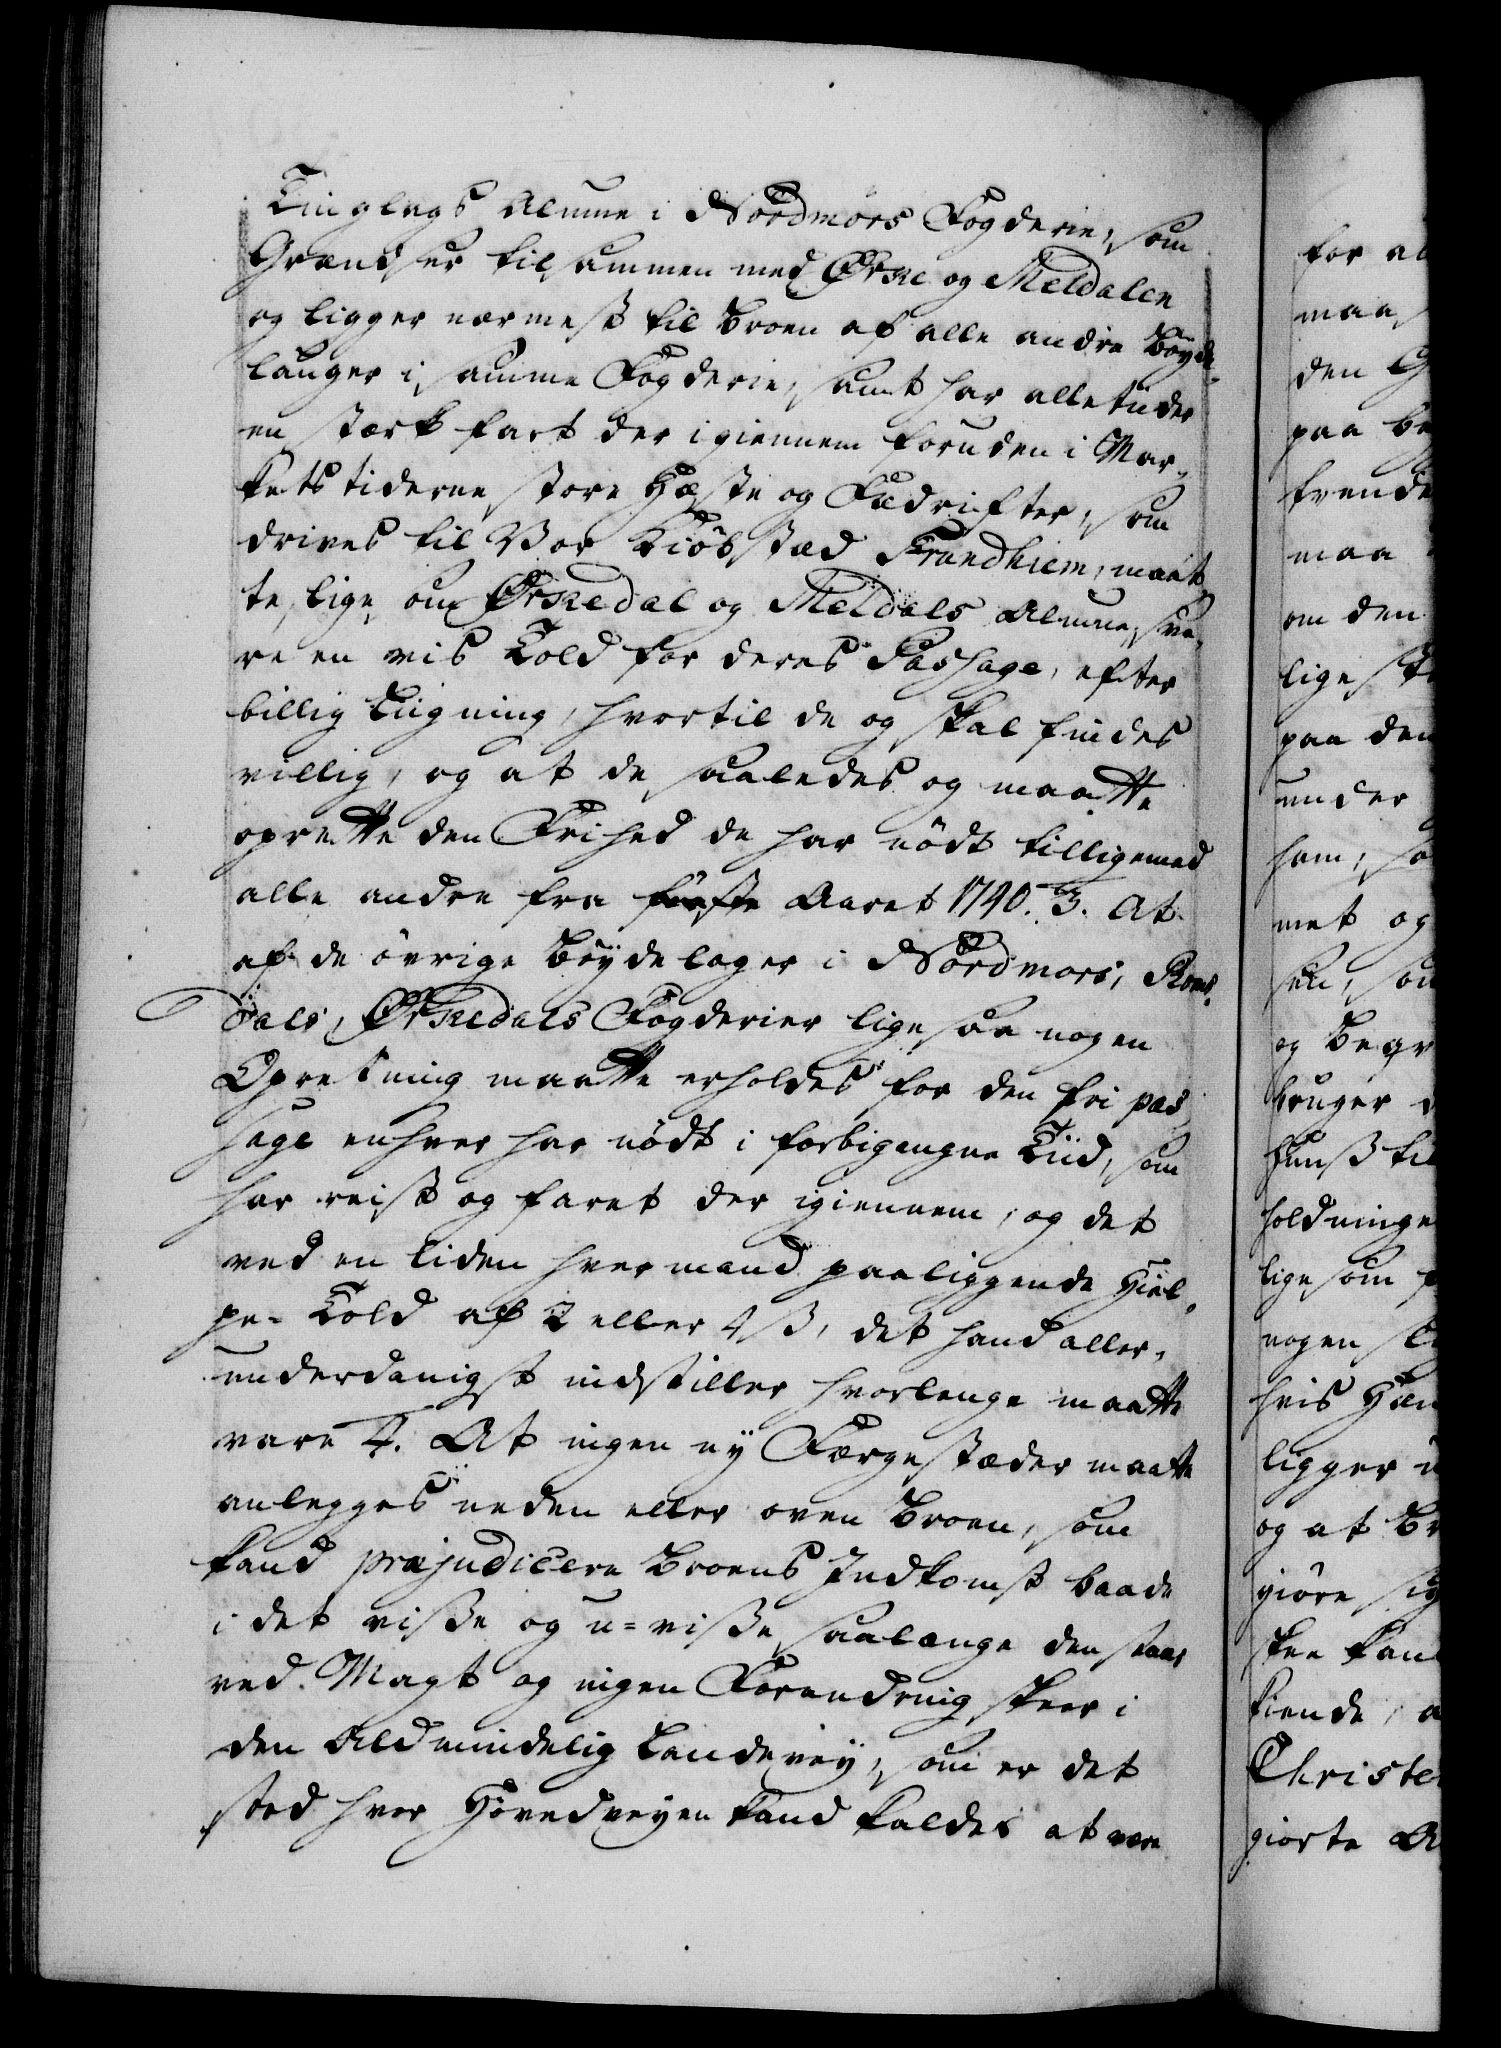 Tinglags Almue i Nordmörs Fogderie, som
Grændser tilsammen med Örke og Meldalen
og ligger nærmest til Broen af alle andre Böyde¬
lauger i samme Fogderie, samt har alletider
en stærk fart der igiennem foruden i Mar¬
kets tiderne store Heste og Fædrifter, som
drives til Vor Kiöbstæd Trondhiem, maat¬
te, lige om Örkedal og Meldals Almue, sva¬
re en vis Told for deres Passage, efter
billig Ligning, hvortil de og skal findes
villig, og at de saaledes og maatte
oprette den Frihed de har nödt tilligemed
alle andre fra første Aaret 1740. 3. At
af de övrige Böydelager i Nordmörs, Roms¬
dals, Örkedals Fogderier ligesaa nogen
Opretning maatte erholdes for den fri pas¬
sage enhver har nödt i forbigangne Tiid, som
har reist og faret der igiennem, og det
ved en liden hver mand paaliggende Hiel¬
pe= Told af 2 eller 4 ß, det hand aller¬
underdanigst indstiller hvorlenge maatte
vare 4. At ingen ny Færgestæder maatte
anlegges neden eller oven Broen, som
kand præjudicere Broens Indkomst baade
i det visse og u=visse, saalænge den staar
ved Magt og ingen Forandring skeer i
den Aldmindelig Landevey, som er det
sted hvor Hovedveyen kand kaldes at være
for al
maa
den G
paa be
frende
maa
om den
lige
paa den
under
ham, so
met og
sen, som
og Begr
bruger
til
holdninge
ligesom
nogen
hvis
ligger
og at Br
giöre sig
skee kan
kiende, a
Christe
giorte A